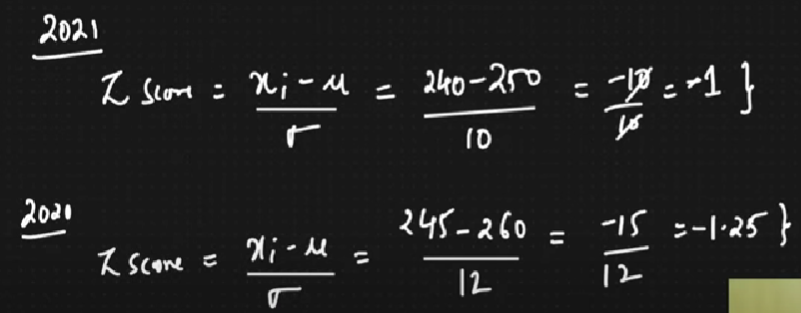 2021
Z score = xi - μ / σ = 240-250 / 10 = -10 / 10 = -1 }
2020
Z score = xi - μ / σ = 245-260 / 12 = -15 / 12 = -1.25 }